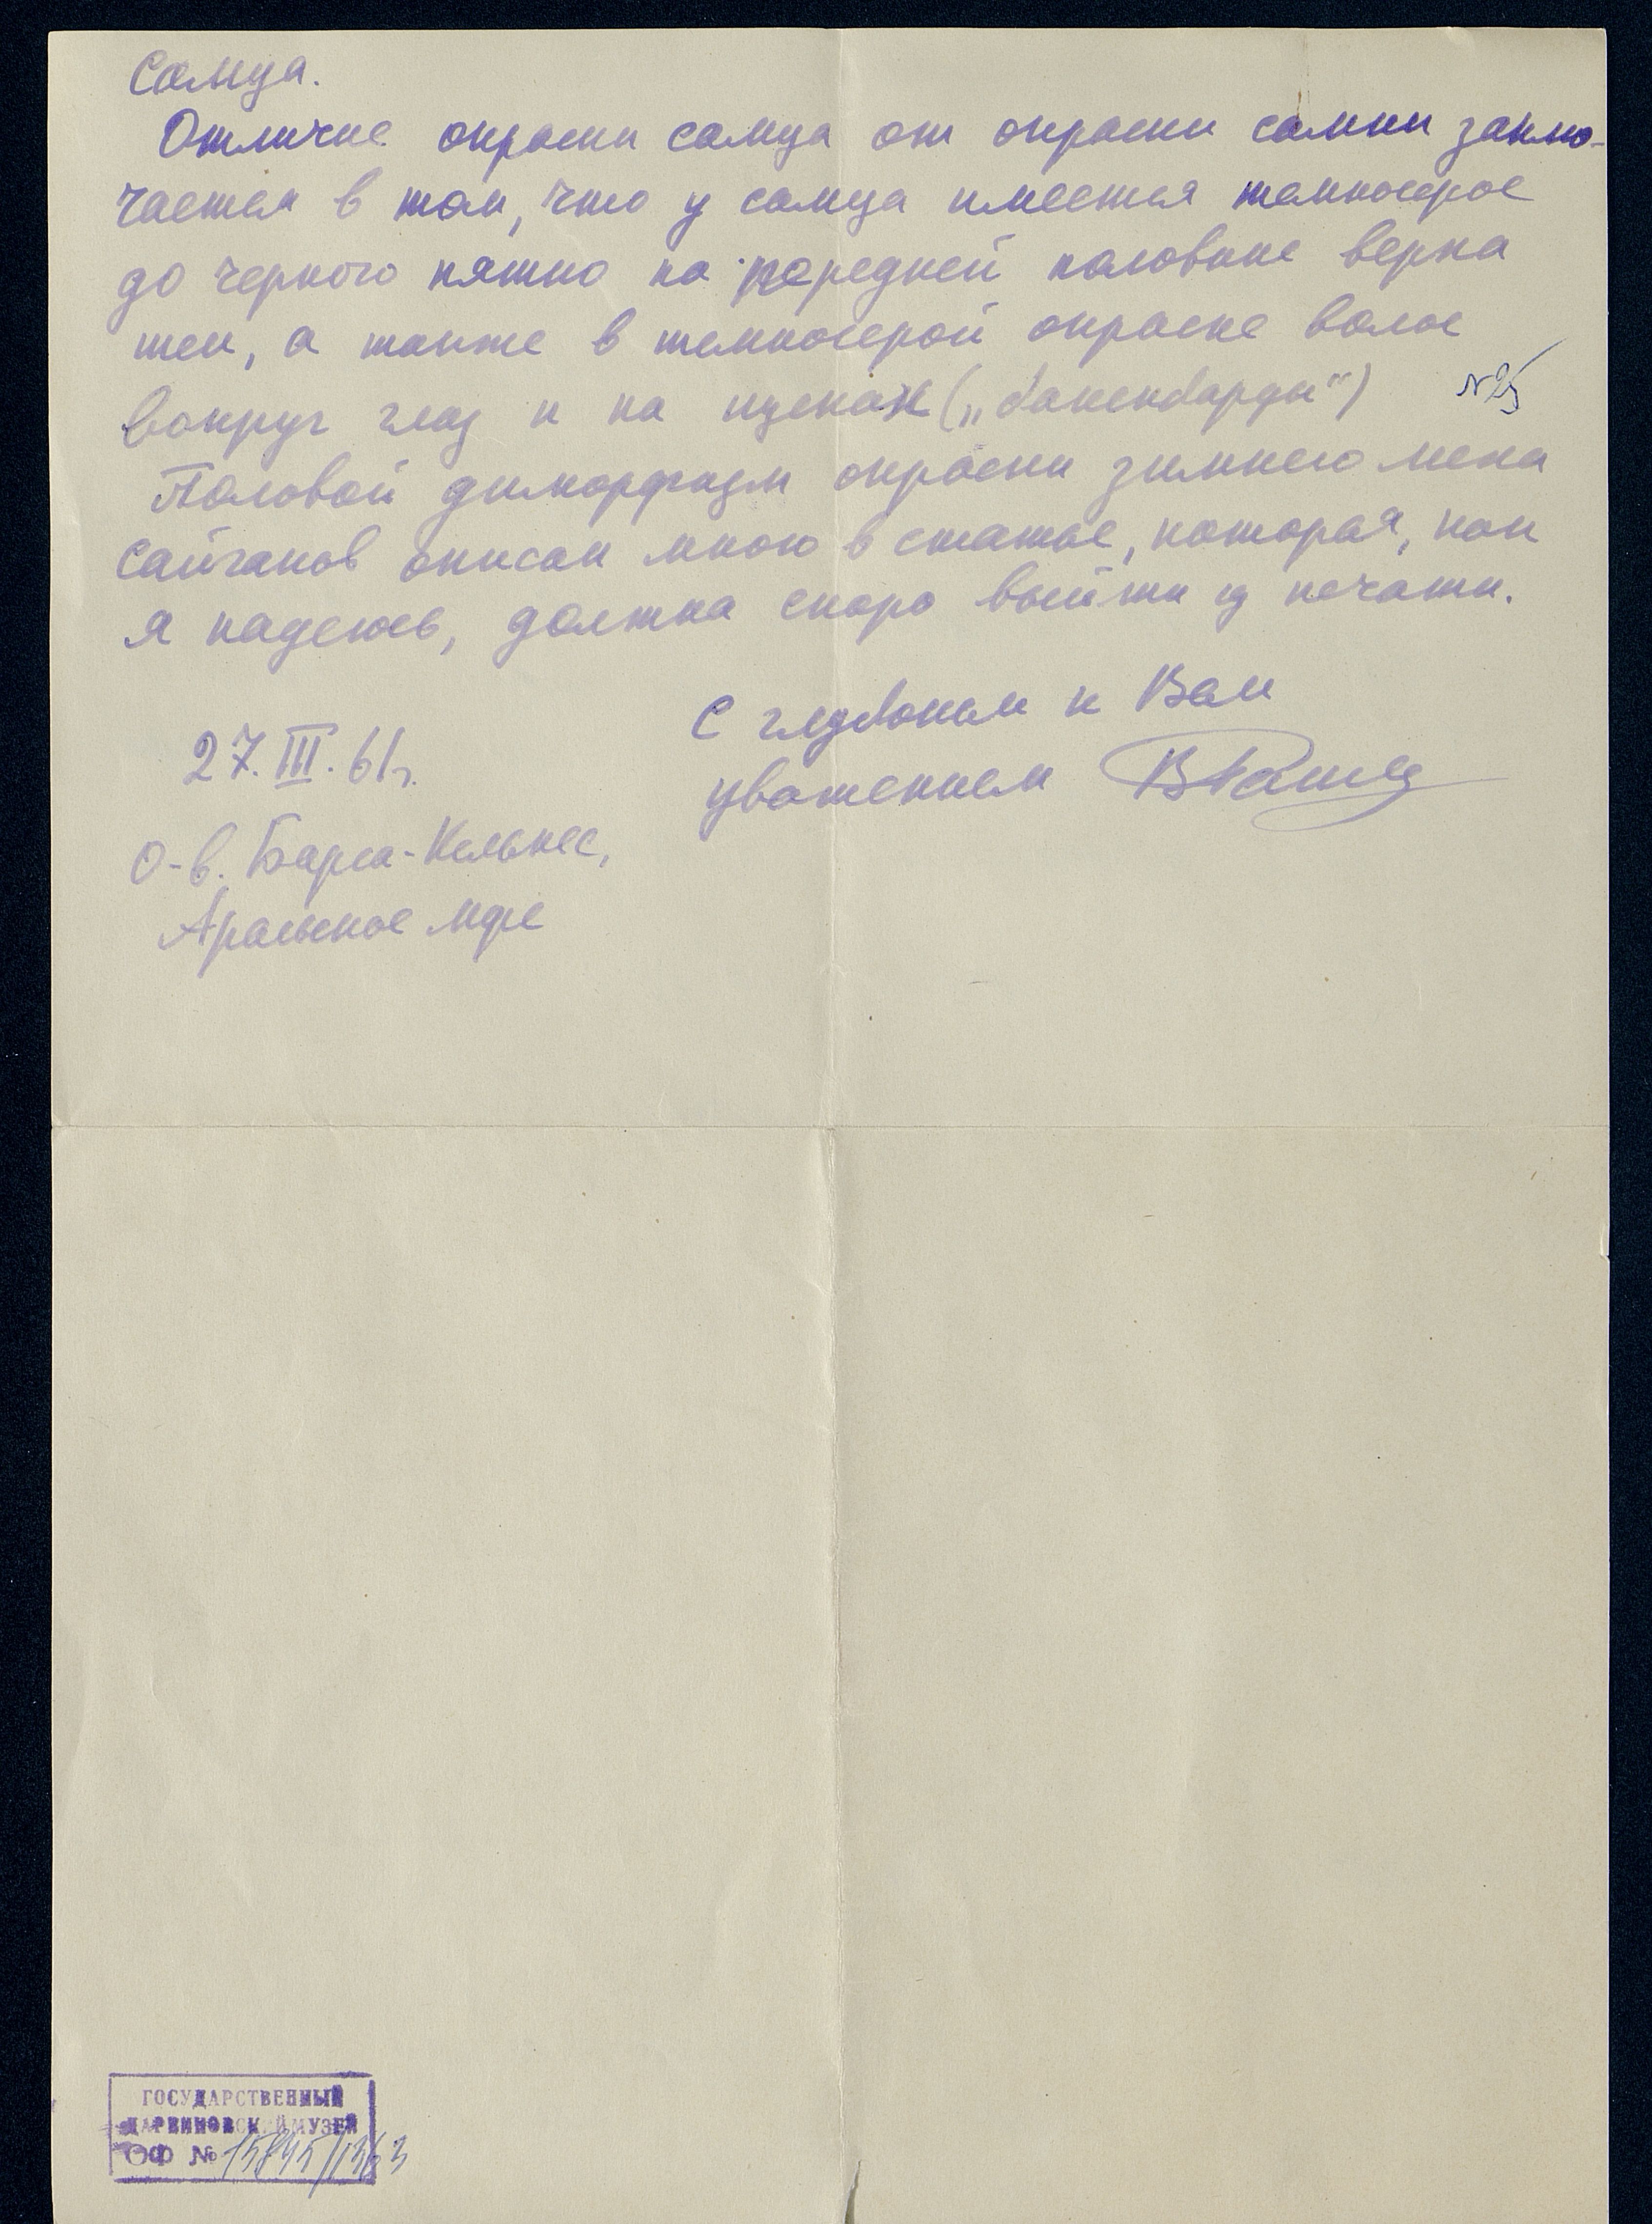 самца.
Отличие окраски самца от окраски самки заклю-
чается в том, что у самца имеется темносерое
до черного пятно на передней половине верха
шеи, а также в темносерой окраске волос
вокруг глаз и на щеках („бакенбарды“)
№25
Половой диморфизм окраски зимнего меха
сайгаков описан мною в статье, которая, как
я надеюсь, должна скоро выйти из печати.
С глубоким к Вам
уважением
27.III.61г.
О-в. Барса-Кельмес,
Аральское море
ГОСУДАРСТВЕННЫЙ
ДАРВИНОВСКИЙ МУЗЕЙ
ОФ № 15845/1363